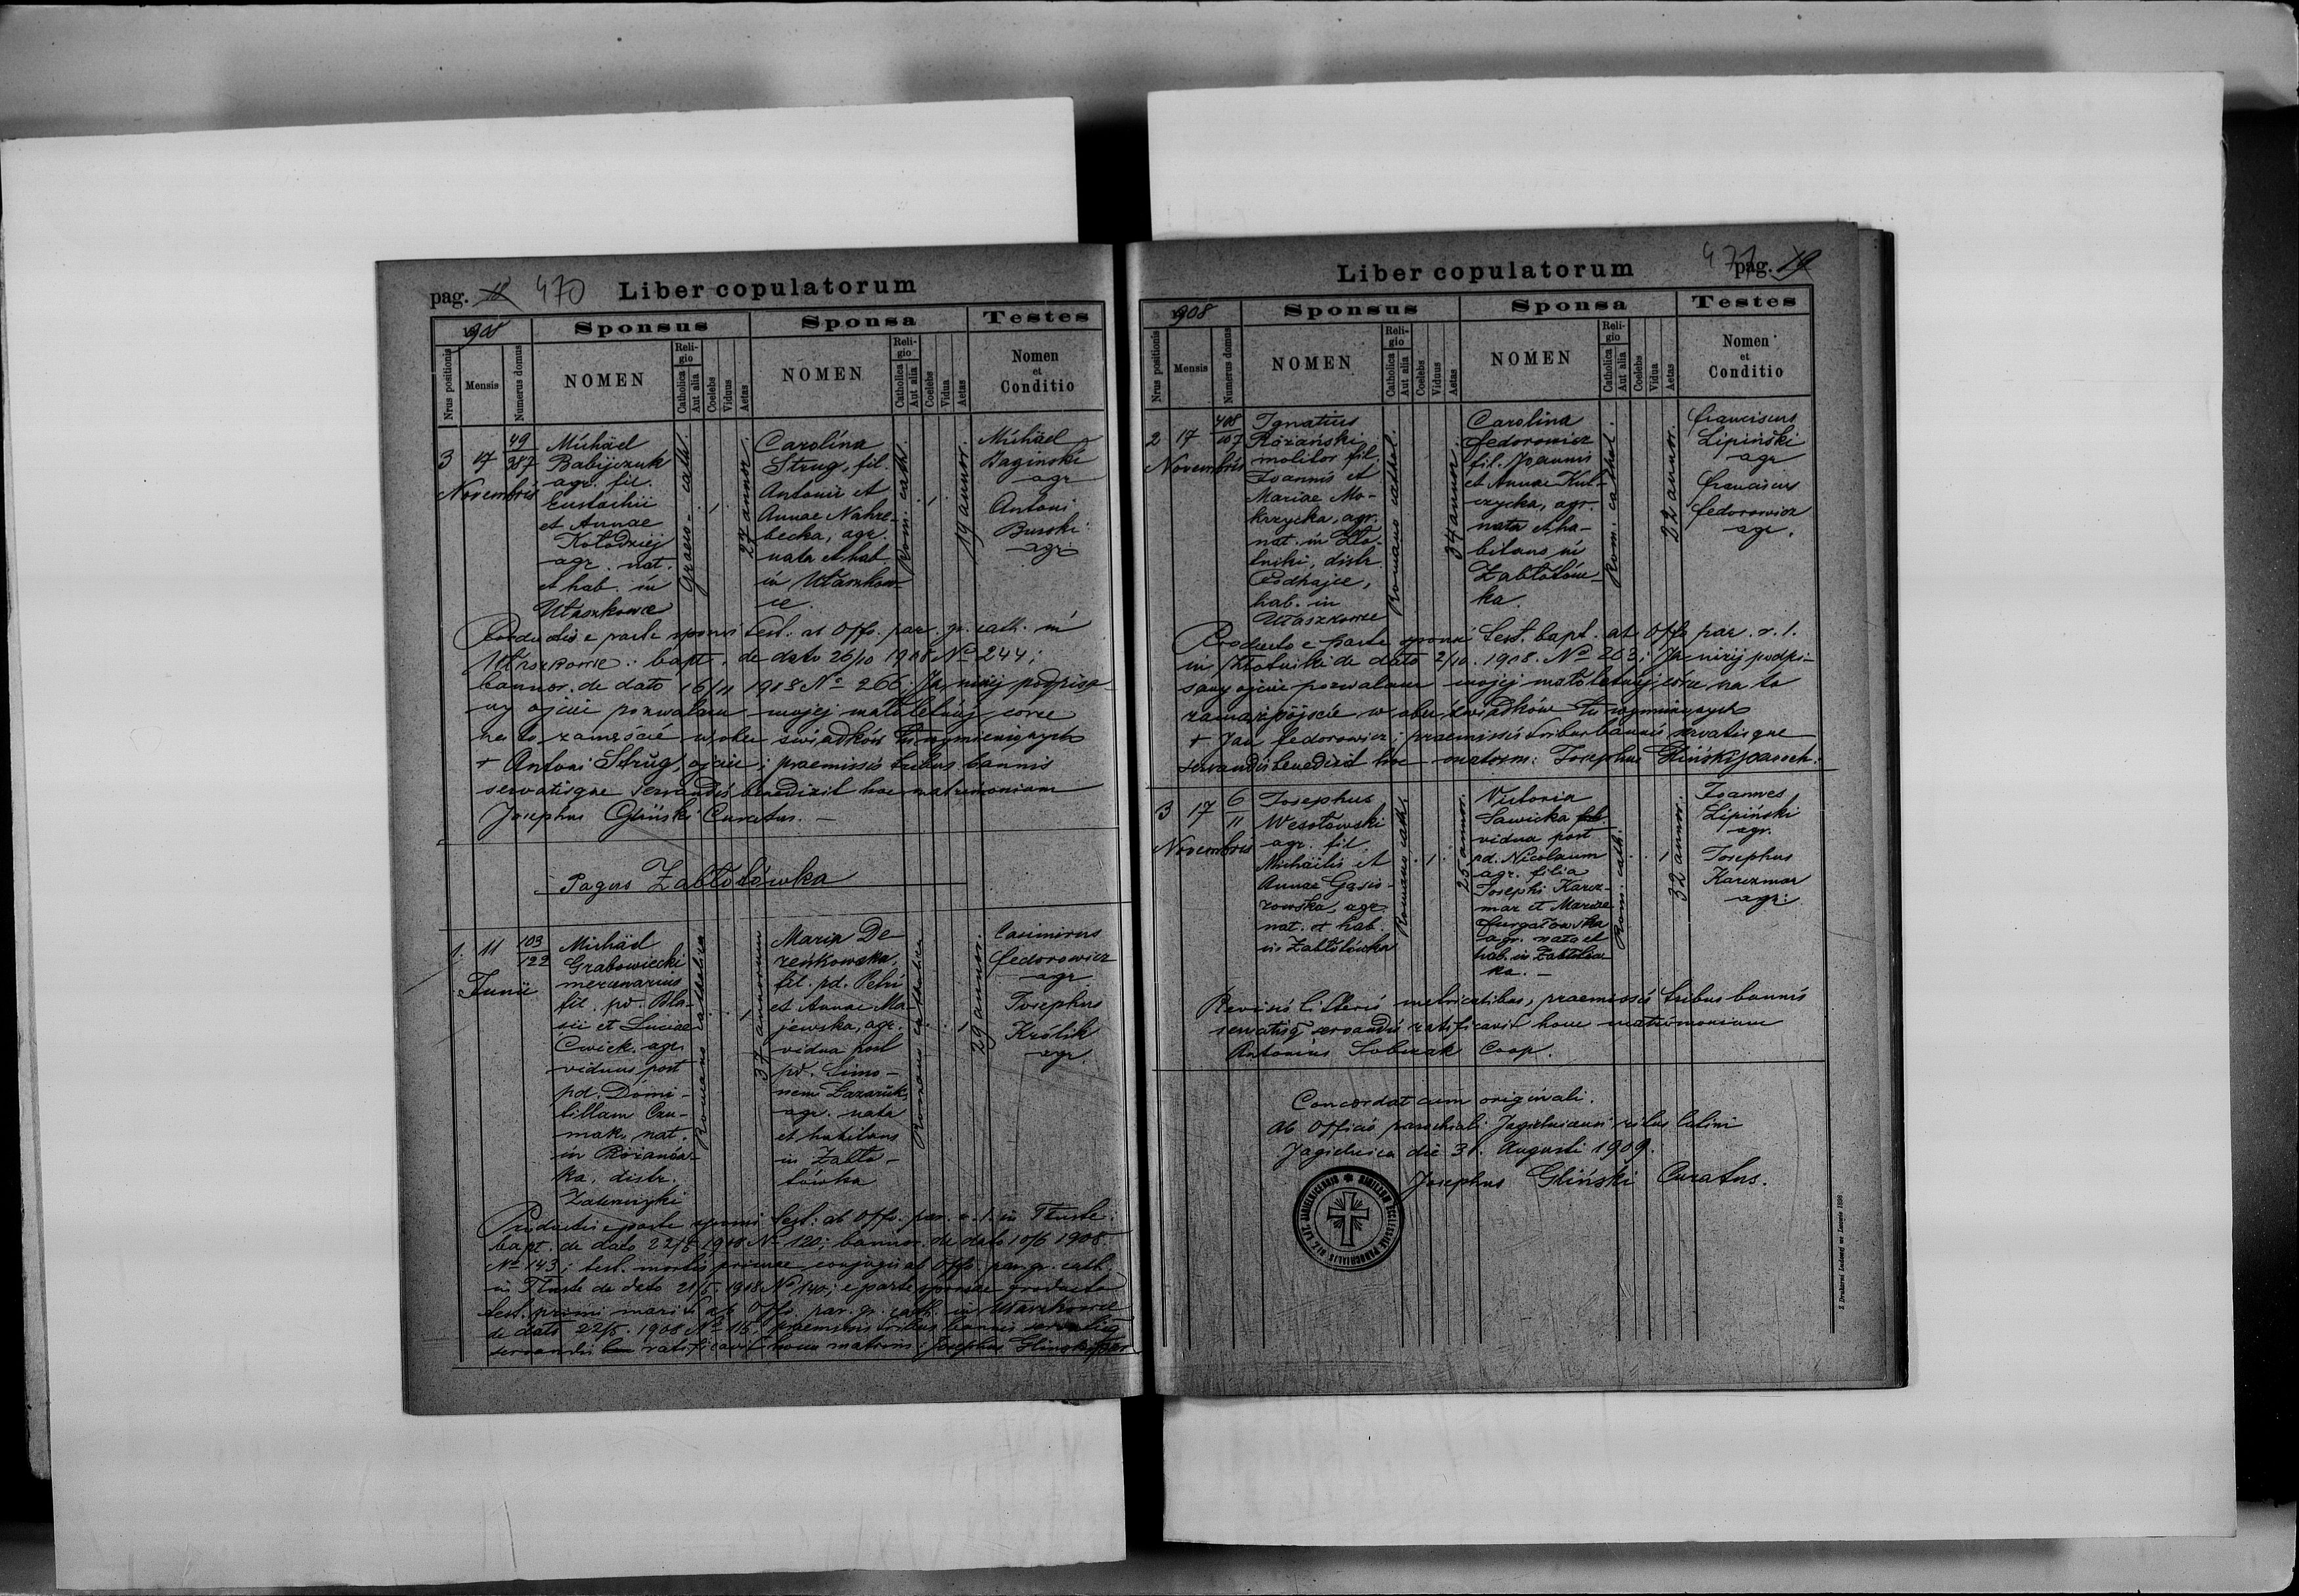 pag. 18 470 Liber copulatorum
1908
Sponsus Sponsa Testes
Nrus positionis Mensis Numerus domus NOMEN Religio Catholica Aut alia Coelebs Viduus Aetas NOMEN Religio Catholica Aut alia Coelebs Vidua Aetas Nomen et Conditio
3 17 Novembris
49
387
Michäel
Babijczuk
agr. fil.
Eustachii
et Annae
Kołodziej
agr. nat.
et hab. in
Ułaszkowce
Graeco - cath.
1
27 annor.
Carolina
Strug, fil.
Antonii et
Annae Nahre-
becka, agr.
nata et hab.
in Ułaszkow-
ce.
Rom. cath.
1
19 annor.
Michäel
Baginski
agr
Antoni
Burski
agr
Productis e parte sponsi test. ab Offo. par. gr. cath. in
Ułaszkowce: bapt. de dato 26/10 1908 No 244;
bannor. de dato 16/11 1908 No 266; Ja niżej podpisa-
ny ojciec pozwalam mojej małoletniej córce
na to zamęście wobec świadków tu wymienionych
+ Antoni Strug, ojciec; praemissis tribus bannis
servatisque servandis benedixit hoc matrimonium
Josephus Gliński Curatus. -
Pagus Zabłotówka
1. 11 Junii
103
122
Michäel
Grabowiecki
mercenarius
fil. pd. Bla-
sii et Luciae
Ćwiek. agr.
viduus post
pd. Domi-
tillam Czu-
mak, nat.
in Rożanów-
ka, distr.
Zaleszczyki
Romano catholica
1
37 annorum
Maria De-
reńkowska,
fil. pd. Petri
et Annae Ma-
jewska, agr.
vidua post
pd. Simo-
nem Łazaruk,
agr. nata
et habitans
in Zabło-
tówka
Romano catholica
1
29 annor.
Casimirus
Fedorowicz
agr
Josephus
Królik
agr
Productis e parte sponsi test: ab Offo. par. r. l. in Tłuste:
bapt. de dato 22/5 1908 No 120; bannor. de dato 10/6 1908
No 143; test. mortis primae conjugis ab Offo. par. gr. cath.
in Tłuste de dato 21/5. 1908 No 140; e parte sponsae producto
test. primi mariti ab Offo. par. gr. cath. in Ułaszkowce
de dato 22/5. 1908 No 115; praemissis tribus bannis servatisq
servandis ratificavit hocce matrim: Josephus Gliński
Liber copulatorum 471 pag. 19
1908
Sponsus Sponsa Testes
Nrus positionis Mensis Numerus domus NOMEN Religio Catholica Aut alia Coelebs Viduus Aetas NOMEN Religio Catholica Aut alia Coelebs Vidua Aetas Nomen et Conditio
2 17 Novembris
408
107
Ignatius
Różański
molitor fil.
Joannis et
Mariae Mo-
krzycka, agr.
nat. in Zło-
tniki, distr.
Podhajce,
hab. in
Ułaszkowce
Romano cathol.
34 annor.
Carolina
Fedorowicz
fil. Joannis
et Annae Kul-
czycka, agr.
nata et ha-
bitans in
Zabłotów-
ka.
Rom. cathol.
22 annor.
Franciscus
Lipiński
agr
Franciscus
Fedorowicz
agr.
Producto e parte sponsi test. bapt. ab Offo par. r. l.
in Złotniki de dato 2/10. 1908. No 263; Ja niżej podpi-
sany ojciec pozwalam mojej małoletniej córce na to
zamążpójście w obec świadków tu wymienionych
+ Jan Fedorowicz; praemissis tribus bannis servatisque
servandis benedixit hoc matrim: Josephus Gliński paroch.
3 17 Novembris
6
11
Josephus
Wesołowski
agr. fil.
Michäelis et
Annae Gąsio-
rowska, agr.
nat. et hab.
in Zabłotówka
Romano cath.
1
25 annor.
Victoria
Sawicka
vidua post
pd. Nicolaum
agr. filia
Josephi Karcz-
mar et Mariae
Furgałowska
agr. nata et
hab. in Zabłotów-
ka. -
Rom. cath.
1
32 annor.
Joannes
Lipiński
agr.
Josephus
Karczmar
agr.
Revisis litteris metricalibus, praemissis tribus bannis
servatisq servandis ratificavit hocce matrimonium
Antonius Sobczak Coop.
Concordat cum originali.
Ab Officio parochiali Jagielnicensi ritus latini
Jagielnica die 31. Augusti 1909.
Josephus Gliński Curatus.
SIGILLUM ECCLESIAE PAROCHIALIS RIT. LAT. JAGIELNICENSIS
Z Drukarni Ludowej we Lwowie